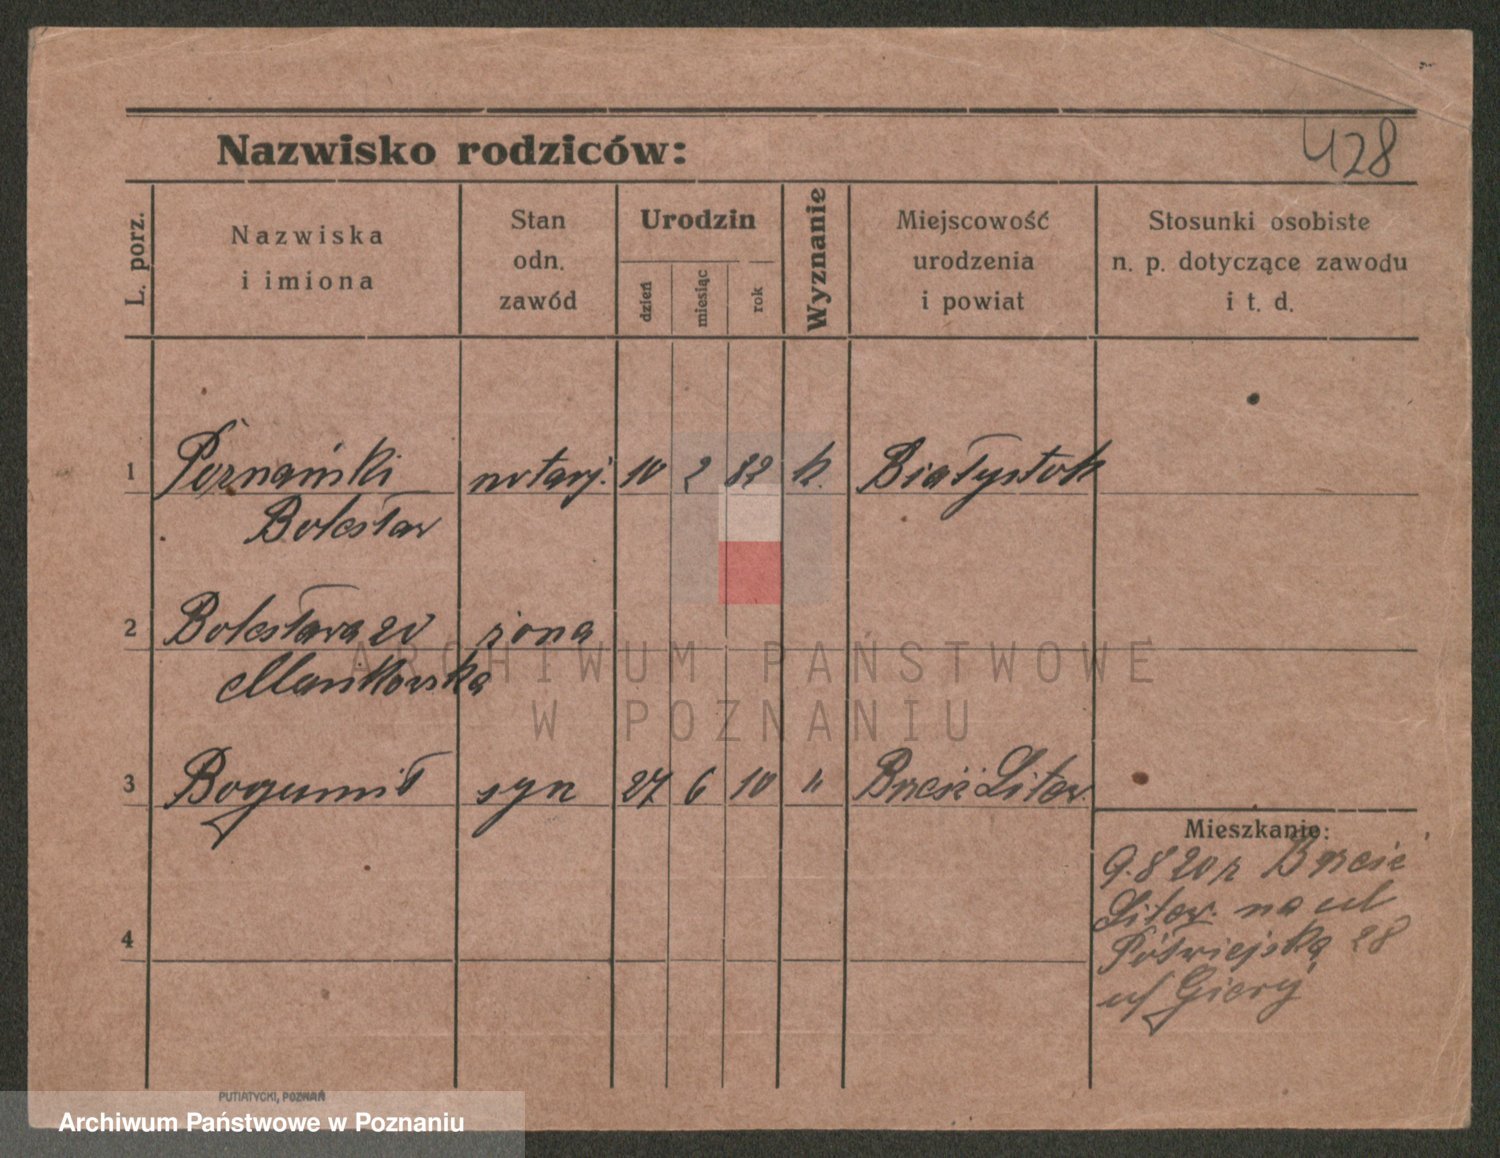 428
Nazwisko rodziców:
L. porz.
Nazwiska
i imiona
Stan
odn.
zawód
Urodzin
dzień
miesiąc
rok
Wyznanie
Miejscowość
urodzenia
i powiat
Stosunki osobiste
n. p. dotyczące zawodu
i t. d.
1 Poznański notarj. 10 2 82 k. Białystok
Bolesław
2 Bolesława zd żona
Mańkowska
3 Bogumił syn 27 6 10 " Brześć Litew.
Mieszkanie:
9.8 20 r Brześć
Litew. na ul
Półwiejską 28
4
ARCHIWUM PAŃSTWOWE
W POZNANIU
PUTIATYCKI, POZNAŃ
Archiwum Państwowe w Poznaniu